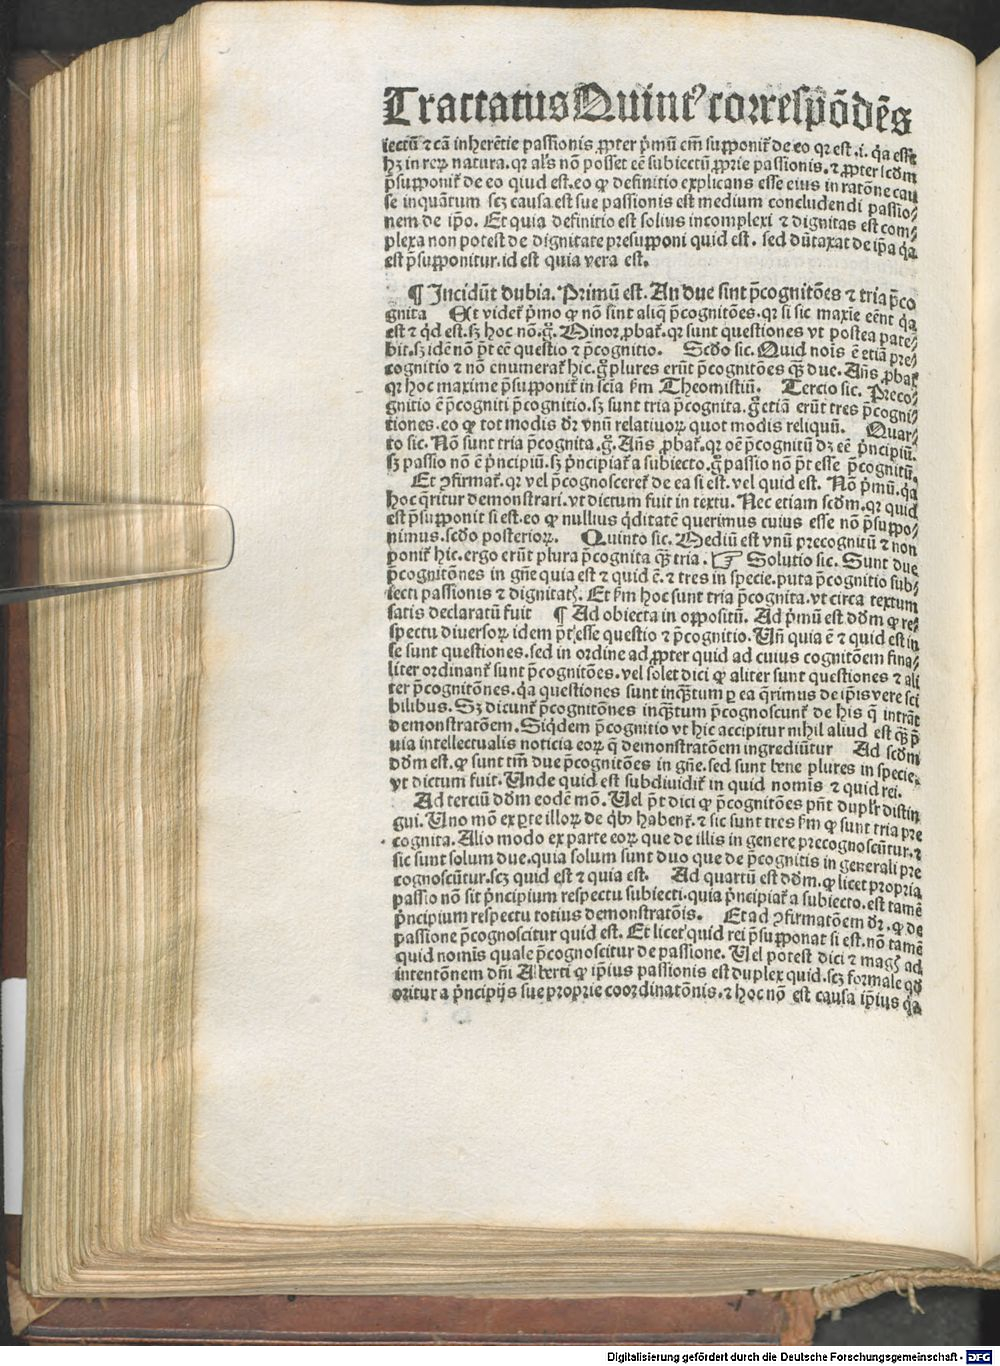 Tractatus Quint⁹ correspōdēs
iectū ⁊ cā inherētie passionis ꝓpter p̄mū em̄ supponit̄ de eo qꝛ est .i. q̄a esse
hꝫ in reꝝ natura. qꝛ al's nō posset eē subiectū ꝓprie passionis. ⁊ ꝓpter scd̄m
p̄supponit̄ de eo qiud est. eo ꝙ definitio explicans esse eius in ratōne cau
se inquātum scꝫ causa est sue passionis est medium concludendi passio⸗
nem de ip̄o. Et quia definitio est solius incomplexi ⁊ dignitas est com⸗
plexa non potest de dignitate presupponi quid est. sed dūtaxat de ip̄a q̄a
est p̄supponitur. id est quia vera est.
¶ Incidūt dubia. Primū est. An due sint p̄cognitōes ⁊ tria p̄co
gnita Et videt̄ p̄mo ꝙ nō sint aliq̄ p̄cognitōes. qꝛ si sic maxie eēnt q̄a
est ⁊ qd est. sꝫ hoc nō. g̊. Minor ꝓbat̄. qꝛ sunt questiones vt postea pate⸗
bit. sꝫ idē nō p̄t eē questio ⁊ p̄cognitio. Scdo sic. Quid nois ē etiā pre⸗
cognitio ⁊ nō enumerat̄ hic. g̊ plures erūt p̄cognitōes qꝫ due. Añs ꝓbat̄
qꝛ hoc maxime p̄supponit̄ in scia s̄m Theomistiū. Tercio sic. Preco⸗
gnitio ē p̄cogniti p̄cognitio. sꝫ sunt tria p̄cognita. g̊ etiā erūt tres p̄cogni⸗
tiones. eo ꝙ tot modis dr̄ vnū relatiuoꝝ quot modis reliquū. Quar⸗
to sic. Nō sunt tria p̄cognita. g̊. Añs ꝓbat̄. qꝛ oē p̄cognitū dꝫ eē p̄ncipiū.
sꝫ passio nō ē p̄ncipiū. sꝫ p̄ncipiat̄ a subiecto. g̊ passio nō p̄t esse p̄cognitū.
Et ꝯfirmat̄. qꝛ vel p̄cognosceret̄ de ea si est. vel quid est. Nō p̄mū. q̄a
hoc q̄ritur demonstrari. vt dictum fuit in textu. Nec etiam scd̄m. qꝛ quid
est p̄supponit si est. eo ꝙ nullius q̄ditatē querimus cuius esse nō p̄suppo⸗
nimus. scdo posterioꝝ. Quinto sic. Mediū est vnū precognitū ⁊ non
ponit̄ hic. ergo erūt plura p̄cognita qꝫ tria. ☞ Solutio sic. Sunt due
p̄cognitōnes in gn̄e quia est ⁊ quid ē. ⁊ tres in specie. puta p̄cognitio sub⸗
iecti passionis ⁊ dignitatꝭ. Et s̄m hoc sunt tria p̄cognita. vt circa textum
satis declaratū fuit ¶ Ad obiecta in oppositū. Ad p̄mū est dd̄m ꝙ re⸗
spectu diuersoꝝ idem p̄t esse questio ⁊ p̄cognitio. Uñ quia ē ⁊ quid est in
se sunt questiones. sed in ordine ad ꝓpter quid ad cuius cognitōem fina⸗
liter ordinant̄ sunt p̄cognitōes. vel solet dici ꝙ aliter sunt questiones ⁊ ali
ter p̄cognitōnes. q̄a questiones sunt inqꝫtum ꝑ ea q̄rimus de ip̄is vere sci
bilibus. Sꝫ dicunt̄ p̄cognitōnes inqꝫtum p̄cognoscunt̄ de his q̄ intrāt
demonstratōem. Siq̄dem p̄cognitio vt hic accipitur nihil aliud est qꝫ p̄
uia intellectualis noticia eoꝝ q̄ demonstratōem ingrediūtur Ad scd̄m
dd̄m est. ꝙ sunt tm̄ due p̄cognitōes in gn̄e. sed sunt bene plures in specie.
vt dictum fuit. Unde quid est subdiuidit̄ in quid nomis ⁊ quid rei.
Ad terciū dd̄m eodē mō. Uel p̄t dici ꝙ p̄cognitōes pn̄t dupl'r distin
gui. Uno mō ex ꝑte illoꝝ de qꝰ habent̄. ⁊ sic sunt tres s̄m ꝙ sunt tria pre
cognita. Alio modo ex parte eoꝝ que de illis in genere precognoscūtur. ⁊
sic sunt solum due. quia solum sunt duo que de p̄cognitis in generali pre
cognoscūtur. scꝫ quid est ⁊ quia est. Ad quartū est dd̄m. ꝙ licet propria
passio nō sit p̄ncipium respectu subiecti. quia p̄ncipiat̄ a subiecto. est tamē
p̄ncipium respectu totius demonstratōis. Et ad ꝯfirmatōem dr̄. ꝙ de
passione p̄cognoscitur quid est. Et licet quid rei p̄supponat si est. nō tamē
quid nomis quale p̄cognoscitur de passione. Uel potest dici ⁊ magꝭ ad
intentōnem dn̄i Alberti ꝙ ip̄ius passionis est duplex quid. scꝫ formale qd
oritur a p̄ncipijs sue proprie coordinatōnis. ⁊ hoc nō est causa ip̄ius q̄a
Digitalisierung gefördert durch die Deutsche Forschungsgemeinschaft - DFG